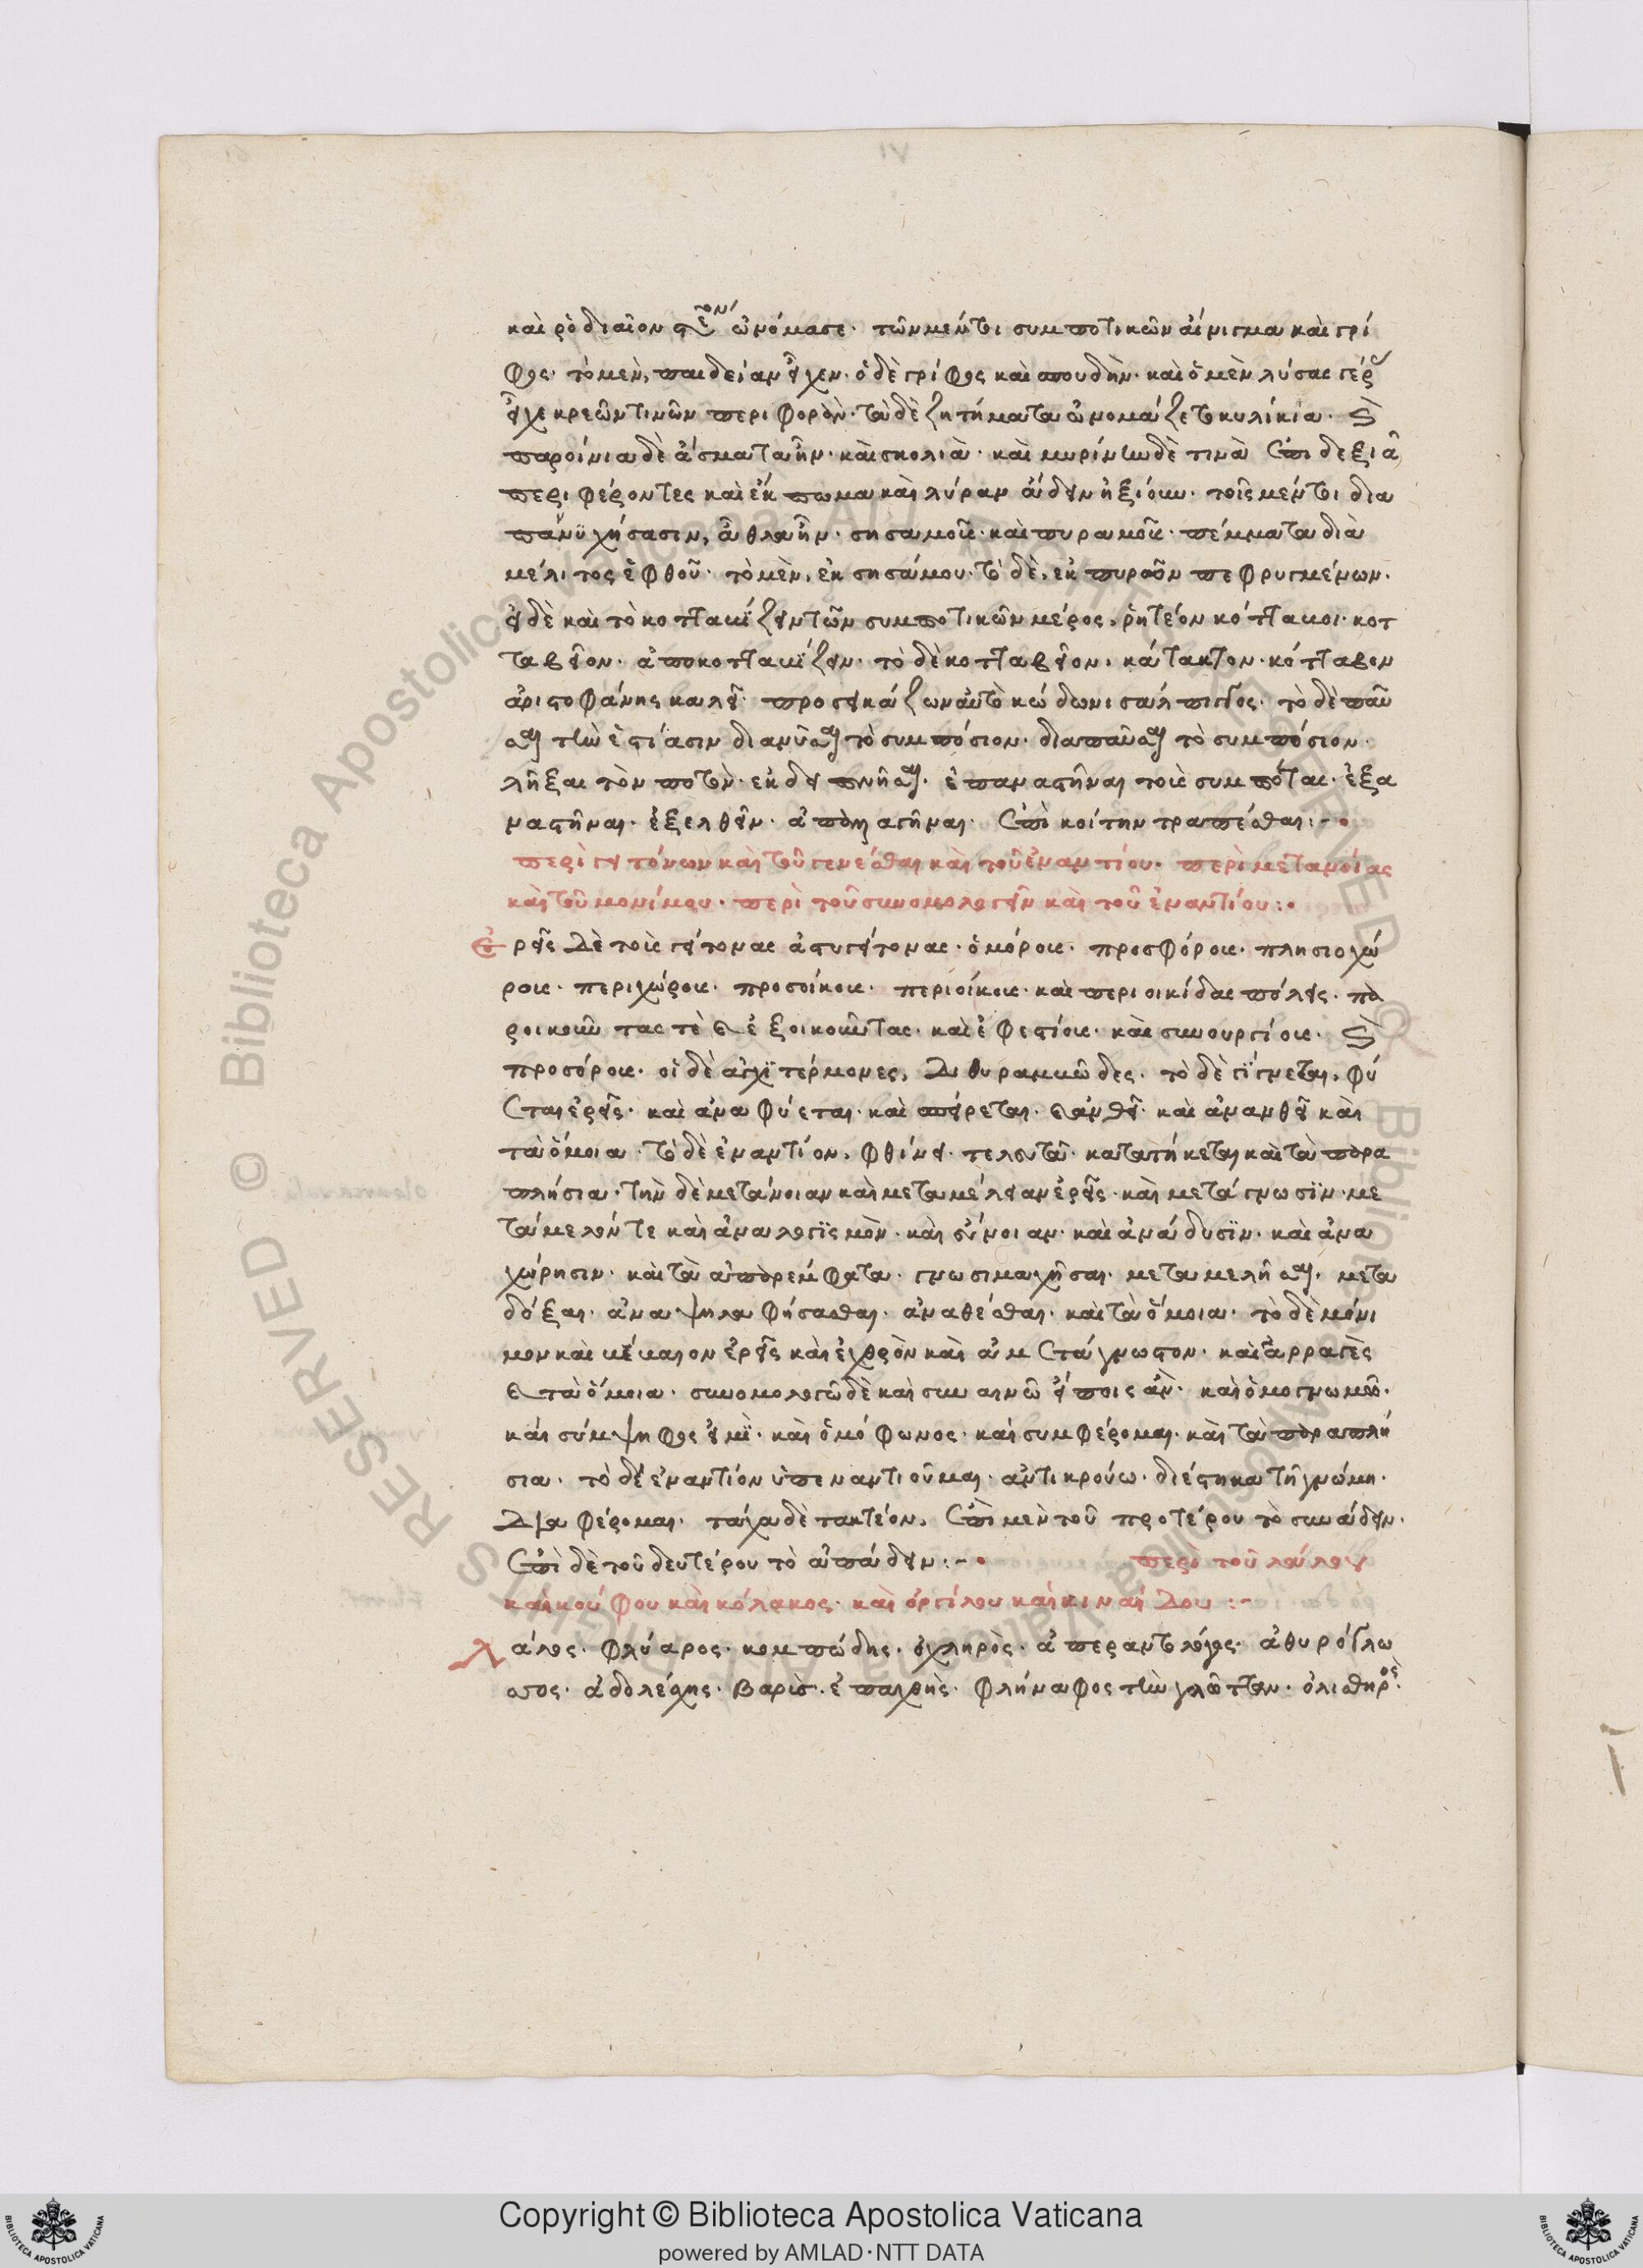 καὶ ῥοδιαῖον ὠνόμασε· τῶν μέντοι συμποτικῶν αἴνιγμα καὶ γρί
φος· τὸ μὲν, παιδείαν εἶχεν· ὁ δὲ γρίφος καὶ σπουδὴν· καὶ ὁ μὲν λύσας γέρας
εἶχε κρεῶν τινῶν περιφορὰν· τὰ δὲ ζητήματα ὠνομάζετο κυλίκια· καὶ
παροίνια δὲ ἄσματα ἦν· καὶ σκολιὰ· καὶ μυρίνην δὲ τινὰ ἐπιδέξια
περιφέροντες καὶ ἔκπωμα καὶ λύραν ἄδειν ἠξίουν· τοῖς μέντοι δια
παννυχήσασιν, ἆθλα ἦν· σησαμοῦς· καὶ πυραμοῦς· πέμματα διὰ
μέλιτος ἑφθοῦ· τὸ μὲν, ἐκ σησάμου· τὸ δὲ, ἐκ πυρῶν πεφρυγμένων·
εἰ δὲ καὶ τὸ κοτταβίζειν τῶν συμποτικῶν μέρος, ῥητέον κότταβοι· κοτ
ταβεῖον· ἀποκοτταβίζειν· τὸ δὲ κοτταβεῖον, κάτακτον· κότταβον
ἀριστοφάνης καλεῖ· προσεικάζων αὐτὸ κώδωνι σάλπιγγος· τὸ δὲ παῦ
σαι τὴν ἑστίασιν διανῦσαι τὸ συμπόσιον· διαπαῦσαι τὸ συμπόσιον·
λῆξαι τὸν ποτὸν· ἐκδειπνῆσαι· ἐπαναστῆναι τοὺς συμπότας· ἐξα
ναστῆναι· ἐξελθεῖν· ἀπαλλαγῆναι· ἐπὶ κοίτην τραπέσθαι:-
περὶ γειτόνων καὶ τοῦ γενέσθαι καὶ τοῦ ἐναντίου· περὶ μετανοίας
καὶ τοῦ μονίμου· περὶ τοῦ συνομολογεῖν καὶ τοῦ ἐναντίου:·
Ἐρεῖς δὲ τοὺς γείτονας ἀστυγείτονας· ὁμόρους· προσφόρους· πλησιοχώ
ρους· περιχώρους· προσοίκους· περιοίκους· καὶ περιοικίδας πόλεις· πα
ροικοῦντας τὲ καὶ ἐξοικοῦντας· καὶ ἐφεστίους· καὶ συνουργίους· καὶ
προσόρους· οἱ δὲ ἀγχιτέρμονες, διθυραμβῶδες· τὸ δὲ γίγνεται, φύ
εται ἐρεῖς· καὶ ἀναφύεται· καὶ σπείρεται· καὶ ἀνθεῖ· καὶ ἀνανθεῖ καὶ
τὰ ὅμοια· τὸ δὲ ἐναντίον, φθίνει· τελευτᾶ· κατατήκεται καὶ τὰ παρα
πλήσια· τὴν δὲ μετάνοιαν καὶ μεταμέλειαν ἐρεῖς· καὶ μετάγνωσιν· με
τάμελόν τε καὶ ἀναλογισμὸν· καὶ σύνοιαν· καὶ ἀνάδυσιν· καὶ ἀνα
χώρησιν· καὶ τὰ ἀπαρέμφατα· γνωσιμαχῆσαι· μεταμελῆσαι· μετα
δόξαι· ἀναψηλαφήσασθαι· ἀναθέσθαι· καὶ τὰ ὅμοια· τὸ δὲ μόνι
μον καὶ βέβαιον ἐρεῖς καὶ ἐχυρὸν καὶ ἀμετάγνωστον· καὶ ἀρραγὲς
καὶ τὰ ὅμοια· συνομολογῶ δὲ καὶ συναινῶ εἴποις ἂν· καὶ ὁμογνωμῶ·
καὶ σύμψηφος εἰμὶ· καὶ ὁμόφωνος· καὶ συμφέρομαι· καὶ τὰ παραπλή
σια· τὸ δὲ ἐναντίον ὑπεναντιοῦμαι· ἀντικρούω· διέστηκα τῇ γνώμῃ·
Διαφέρομαι· τάχα δὲ τακτέον, ἐπὶ μὲν τοῦ προτέρου τὸ συνάδειν·
ἐπὶ δὲ τοῦ δευτέρου τὸ ἀπάδειν:- περὶ τοῦ λάλου
καὶ κούφου καὶ κόλακος· καὶ ὀργίλου καὶ κιναίδου:-
Λάλος· φλύαρος· κομπώδης· ὀχληρὸς· ἀπεραντολόγος· ἀθυρόγλω
σσος· ἀδολέσχης· βαρὺς· ἐπαχθὴς· φλήναφος τὴν γλῶτταν· ὀλισθηρὸς·